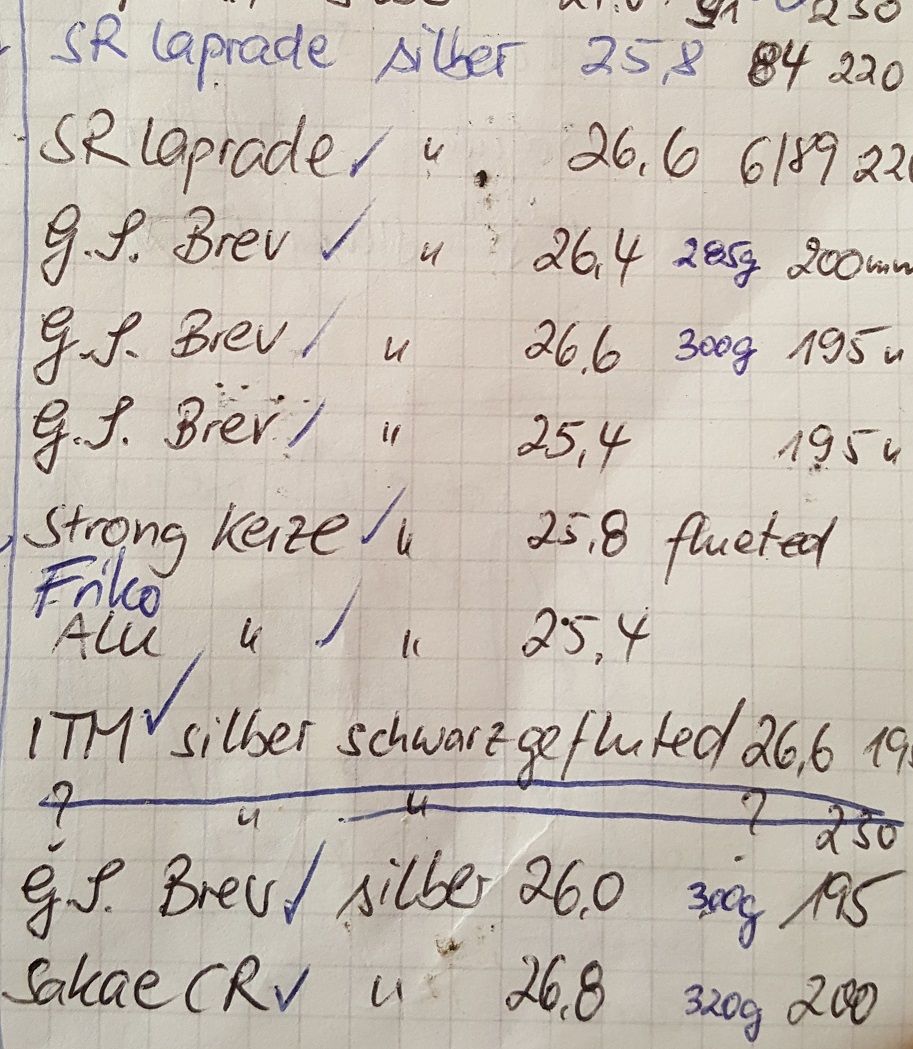 230
SR laprade silber 25,8 84 220
SR laprade ✓ " 26,6 6/89 220
G.S. Brev ✓ " 26,4 285g 200mm
G.S. Brev ✓ " 26,6 300g 195 "
G.S. Brev ✓ " 25,4 195 "
Strong Kerze ✓ " 25,8 flueted
Friko
Alu " ✓ " 25,4
ITM ✓ silber schwarz gefluted 26,6 19
? " " ? 230
G.S. Brev ✓ silber 26,0 300g 195
Sakae CR ✓ " 26,8 320g 200